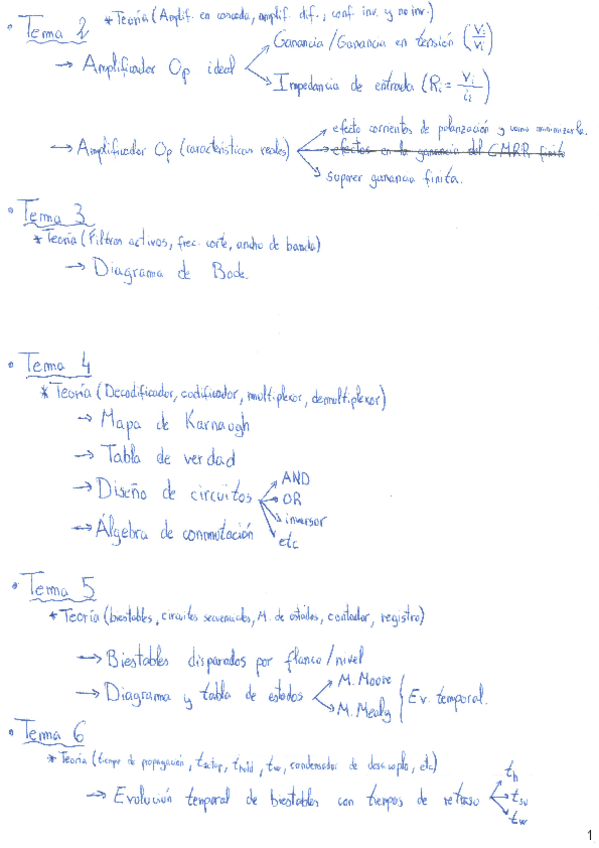 • Tema 2 * Teoría (Amplif. en cascada, amplif. dif., conf. inv. y no inv.)
→ Amplificador Op ideal
Ganancia / Ganancia en tensión (
Impedancia de entrada (Ri = Vi/ii)
→ Amplificador Op (características reales)
efecto corrientes de polarización y como minimizarla.
efectos en la ganancia del CMRR finito
suponer ganancia finita.
• Tema 3
* Teoría (Filtros activos, frec. corte, ancho de banda)
→ Diagrama de Bode.
• Tema 4
* Teoría (Decodificador, codificador, multiplexor, demultiplexor)
→ Mapa de Karnaugh
→ Tabla de verdad
→ Diseño de circuitos
AND
OR
inversor
etc
→ Álgebra de conmutación
• Tema 5
* Teoría (biestables, circuitos secuenciales, M. de estados, contador, registro)
→ Biestables disparados por flanco/nivel
→ Diagrama y tabla de estados
M. Moore
M. Mealy
Ev. temporal.
• Tema 6
* Teoría (tiempo de propagación, tsetup, thold, tw, condensador de desacoplo, etc)
→ Evolución temporal de biestables con tiempos de retraso
th
tsu
tw
1